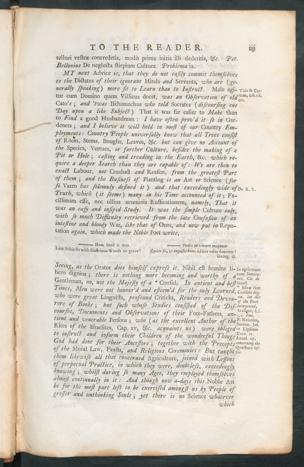 TO THE READER. iij
telluri vestræ concreditis, modò prima initia iis dederitis, &c. Pet.
Bellonius De neglecta stirpium Cultura. Problema ix.
MT next Advice is, that they do not easily commit themselves
to the Dictates of their ignorant Hinds and Servants, who are (ge-
nerally speaking) more fit to Learn than to Instruct. Male agi-
tur cum Domino quem Villicus docet, was an Observation of old
Cato's; and 'twas Ischomachus who told Socrates (discoursing one
Day upon a like Subject) That it was far easier to Make than
to Find a good Husbandman: I have often prov'd it so in Gar-
deners; and I believe it will hold in most of our Country Em-
ployments: Country People universally know that all Trees consist
of Roots, Stems, Boughs, Leaves, &c. but can give no Account of
the Species, Vertues, or farther Culture, besides the making of a
Pit or Hole; casting and treading in the Earth, &c. which re-
quire a deeper Search than they are capable of: We are then to
exact Labour, not Conduct and Reason, from the greatest Part
of them; and the Business of Planting is an Art or Science (for
so Varro has solemnly defined it) and that exceedingly wide of
Truth, which (it seems) many in his Time accounted of it; Fa-
cillimam esse, nec ullius acuminis Rusticationem, namely, That it
was an easy and insipid Study. It was the simple Culture only,
with so much Difficulty retrieved from the late Confusion of an
intestine and bloody War, like that of Ours, and now put in Repu-
tation again, which made the Noble Poet write,
How hard it was
Low Subjects with illustrious Words to grace!
Verbis ea vincere magnum
Quàm sit, & angustis hunc addere rebus honorem!
Georg. iii.
Seeing, as the Orator does himself express it, Nihil est homine li-
bero dignius; there is nothing more becoming and worthy of a
Gentleman, no, not the Majesty of a Consul. In antient and best
Times, Men were not honour'd and esteem'd for the only Learned,
who were great Linguists, profound Criticks, Readers and Devou-
rers of Books; but such whose Studies consisted of the Dis-
courses, Documents and Observations of their Fore-Fathers, an-
tient and venerable Persons; who (as the excellent Author of the
Rites of the Israelites, Cap. xv, &c. acquaints us) were obliged
to instruct and inform their Children of the wonderful Things
God had done for their Ancestors; together with the Precepts
of the Moral Law, Feasts, and Religious Ceremonies: But taught
them likewise all that concerned Agriculture, joined with Lessons
of perpetual Practice, in which they were, doubtless, exceedingly
knowing; whilst during so many Ages, they employed themselves
almost continually in it: And though now-a-days this Noble Art
be for the most part left to be exercised amongst us by People of
grosser and unthinking Souls; yet there is no Science whatever
which